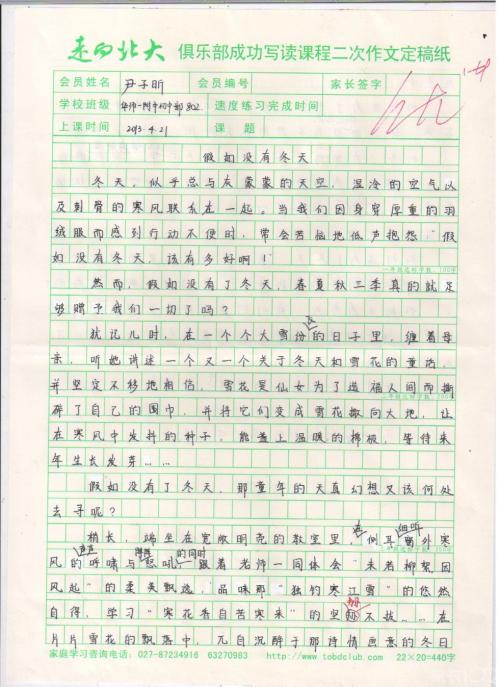 走向北大 俱乐部成功写读课程二次作文定稿纸
会员姓名 尹子昕 会员编号 家长签字
学校班级 华师一附中初中部 802 速度练习完成时间
上课时间 2013.4.21 课题
假如没有冬天
冬天，似乎总与灰蒙蒙的天空，湿冷的空气以
及刺骨的寒风联系在一起。当我们因身穿厚重的羽
绒服而感到行动不便时，常会苦恼地低声抱怨："假
如没有冬天，该有多好啊！"
然而，假如没有了冬天，春夏秋三季真的就足
够赠予我们一切了吗？
犹记儿时，在一个个大雪纷飞的日子里，缠着母
亲，听她讲述一个又一个关于冬天和雪花的童话，
并坚定不移地相信，雪花是仙女为了造福人间而撕
碎了自己的围巾，并将它们变成雪花撒向大地，让
在寒风中发抖的种子，能盖上温暖的棉被，等待来
年生长发芽……
假如没有了冬天，那童年的天真幻想又该何处
去寻呢？
稍长，端坐在宽敞明亮的教室里，侧耳细听窗外寒
风的呼啸与怒吼的同时，跟着老师一同体会"未若柳絮因
风起"的柔美飘逸，品味那"独钓寒江雪"的悠然
自得，学习"寒花香自苦寒来"的坚韧不拔……在
片片雪花的飘落中，兀自沉醉于那诗情画意的冬日
家庭学习咨询电话：027-87234916 63270983 http://www.tobdclub.com 22×20=440字